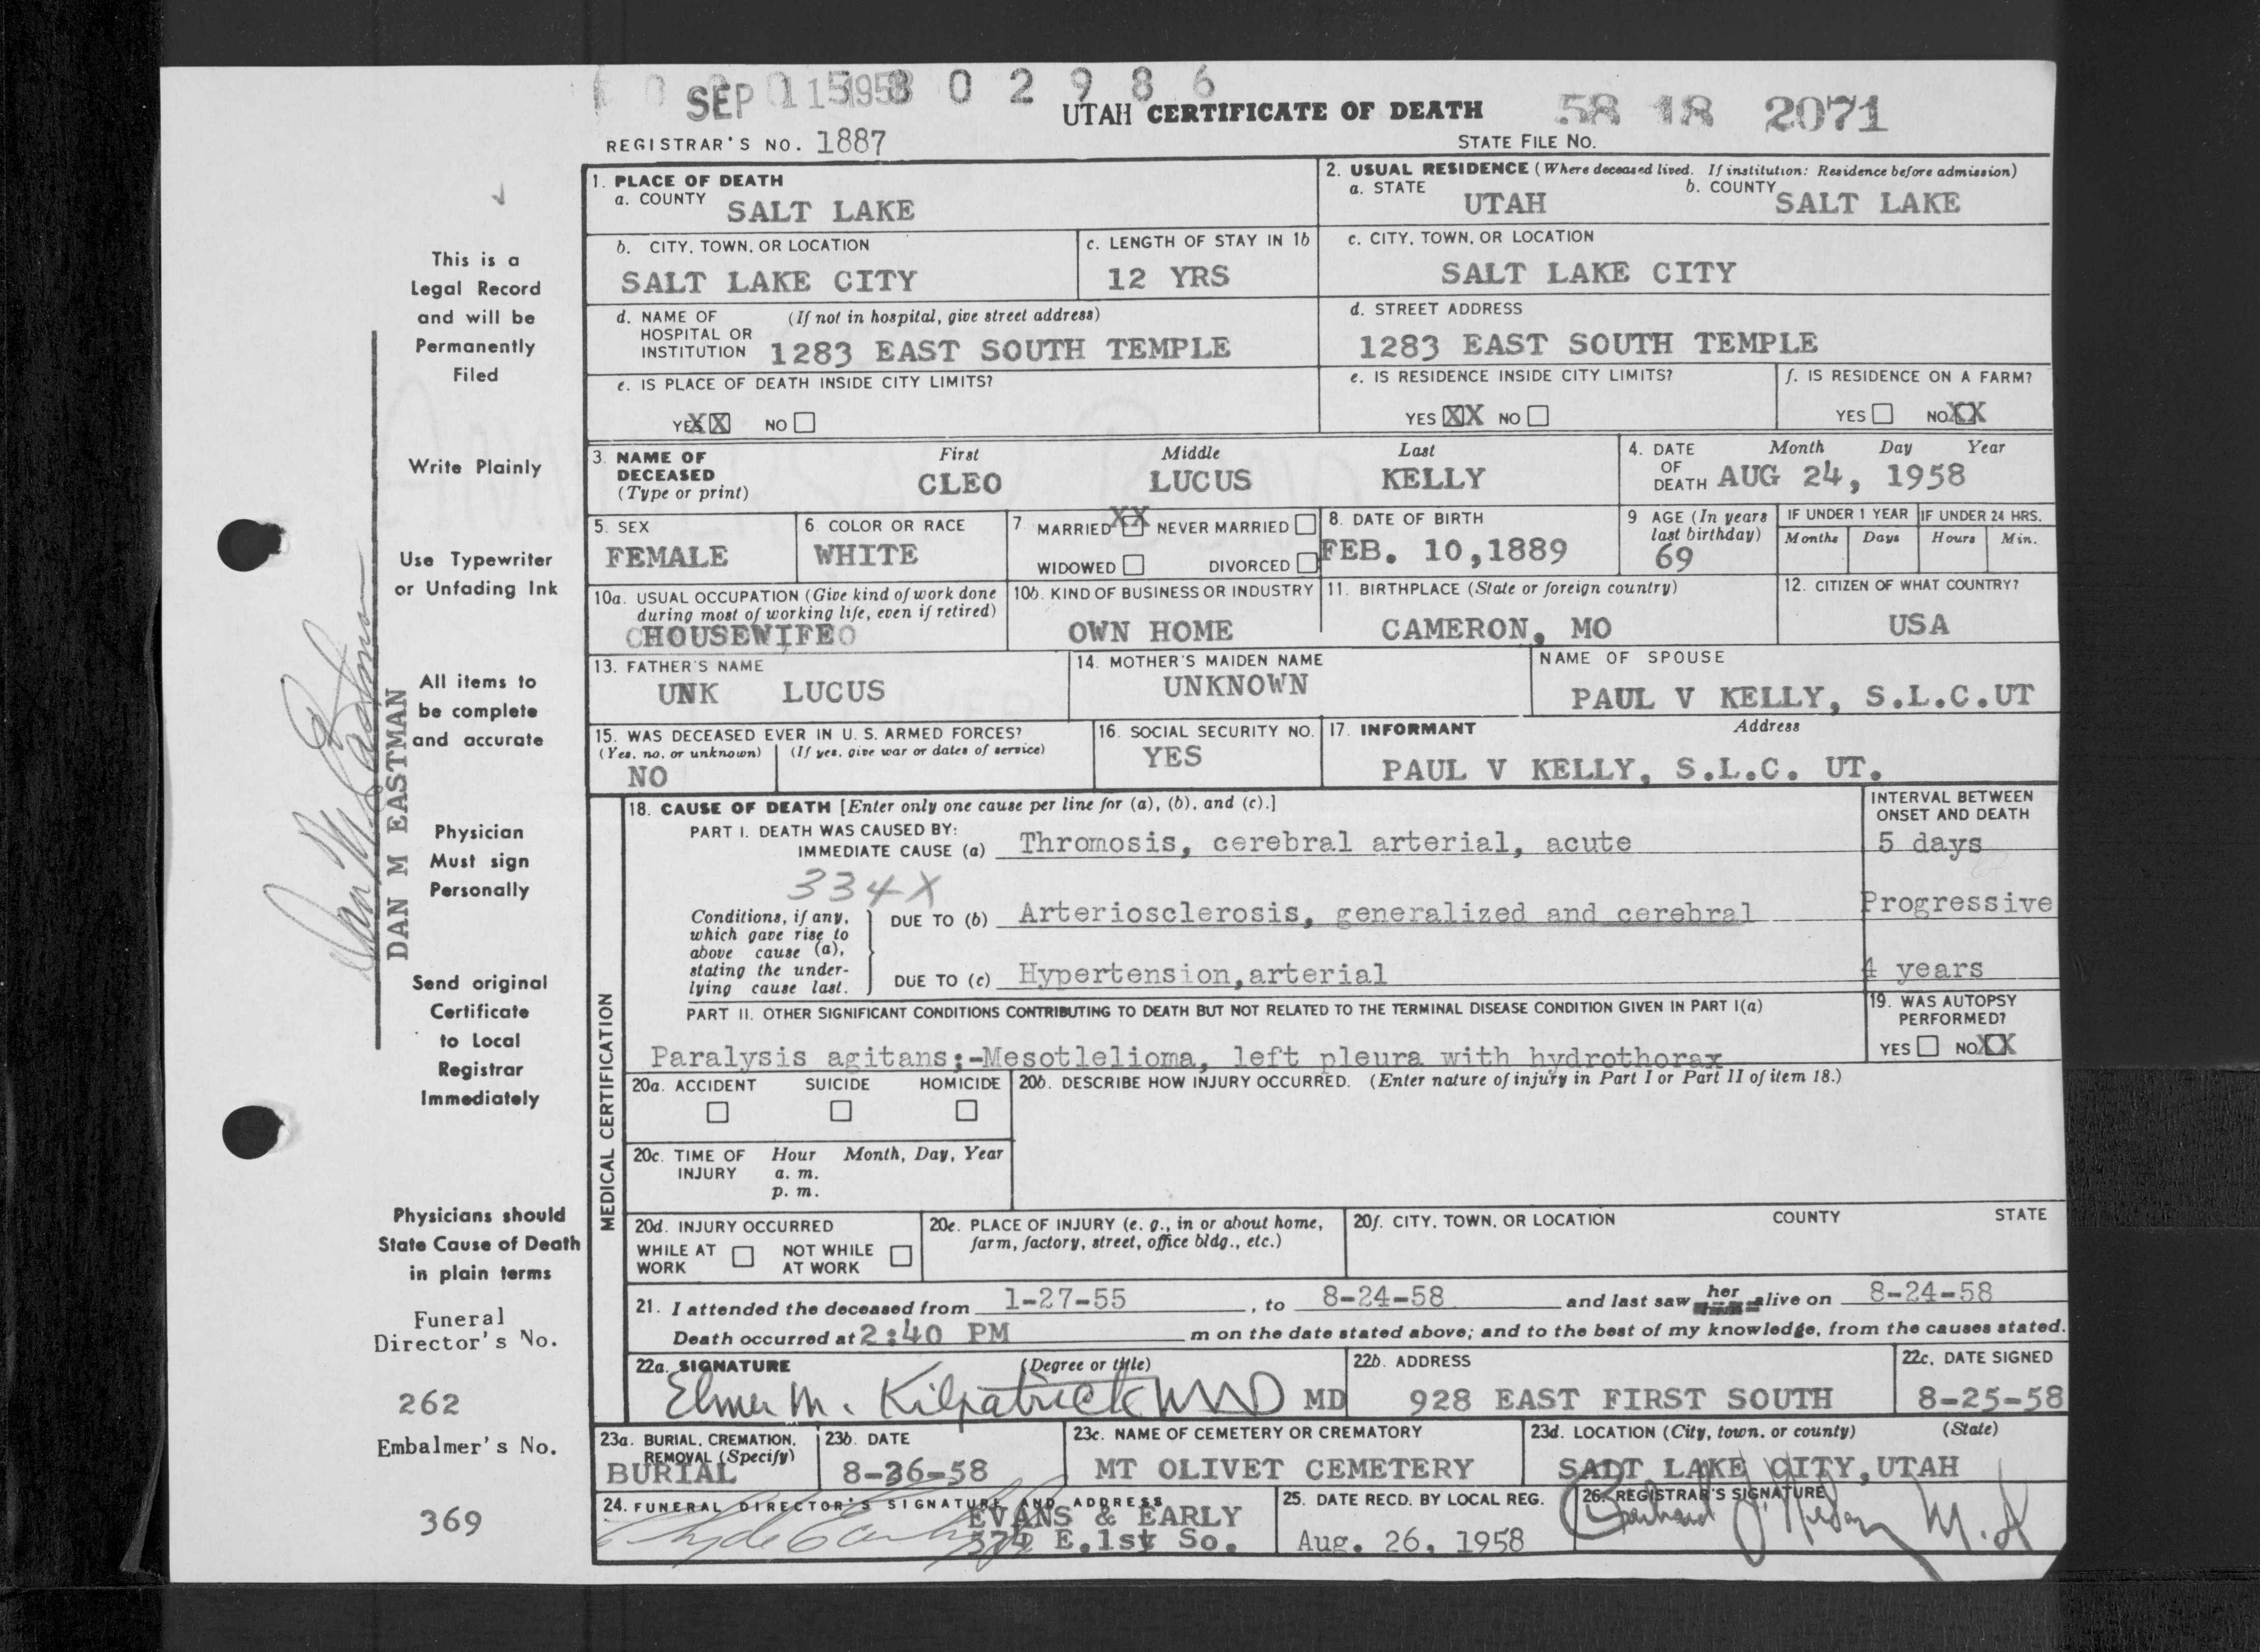 SEP 11 1958 0 2 9 8 6
UTAH CERTIFICATE OF DEATH 58 18 2071
REGISTRAR'S NO. 1887 STATE FILE NO.
1. PLACE OF DEATH
a. COUNTY SALT LAKE
2. USUAL RESIDENCE (Where deceased lived. If institution: Residence before admission)
a. STATE UTAH b. COUNTY SALT LAKE
b. CITY, TOWN, OR LOCATION SALT LAKE CITY
c. LENGTH OF STAY IN 1b 12 YRS
c. CITY, TOWN, OR LOCATION SALT LAKE CITY
d. NAME OF HOSPITAL OR INSTITUTION (If not in hospital, give street address) 1283 EAST SOUTH TEMPLE
d. STREET ADDRESS 1283 EAST SOUTH TEMPLE
e. IS PLACE OF DEATH INSIDE CITY LIMITS?
YES XX NO
e. IS RESIDENCE INSIDE CITY LIMITS?
YES XX NO
f. IS RESIDENCE ON A FARM?
YES NO XX
3. NAME OF DECEASED (Type or print)
First Middle Last
CLEO LUCUS KELLY
4. DATE OF DEATH Month Day Year
AUG 24, 1958
5. SEX FEMALE
6. COLOR OR RACE WHITE
7. MARRIED XX NEVER MARRIED
WIDOWED DIVORCED
8. DATE OF BIRTH FEB. 10,1889
9 AGE (In years last birthday) 69
IF UNDER 1 YEAR Months Days
IF UNDER 24 HRS. Hours Min.
10a. USUAL OCCUPATION (Give kind of work done during most of working life, even if retired)
HOUSEWIFE
10b. KIND OF BUSINESS OR INDUSTRY OWN HOME
11. BIRTHPLACE (State or foreign country) CAMERON, MO
12. CITIZEN OF WHAT COUNTRY? USA
13. FATHER'S NAME UNK LUCUS
14. MOTHER'S MAIDEN NAME UNKNOWN
NAME OF SPOUSE PAUL V KELLY, S.L.C.UT
15. WAS DECEASED EVER IN U. S. ARMED FORCES?
(Yes, no, or unknown) (If yes, give war or dates of service)
NO
16. SOCIAL SECURITY NO. YES
17. INFORMANT Address
PAUL V KELLY, S.L.C. UT.
MEDICAL CERTIFICATION
18. CAUSE OF DEATH [Enter only one cause per line for (a), (b), and (c).]
INTERVAL BETWEEN ONSET AND DEATH
PART I. DEATH WAS CAUSED BY:
IMMEDIATE CAUSE (a) Thromosis, cerebral arterial, acute 5 days
334X
Conditions, if any, which gave rise to above cause (a), stating the underlying cause last.
DUE TO (b) Arteriosclerosis, generalized and cerebral Progressive
DUE TO (c) Hypertension,arterial 4 years
PART II. OTHER SIGNIFICANT CONDITIONS CONTRIBUTING TO DEATH BUT NOT RELATED TO THE TERMINAL DISEASE CONDITION GIVEN IN PART I(a)
Paralysis agitans;-Mesotlelioma, left pleura with hydrothorax
19. WAS AUTOPSY PERFORMED?
YES NO XX
20a. ACCIDENT SUICIDE HOMICIDE
20b. DESCRIBE HOW INJURY OCCURRED. (Enter nature of injury in Part I or Part II of item 18.)
20c. TIME OF INJURY Hour Month, Day, Year
a. m.
p. m.
20d. INJURY OCCURRED
WHILE AT WORK NOT WHILE AT WORK
20e. PLACE OF INJURY (e. g., in or about home, farm, factory, street, office bldg., etc.)
20f. CITY, TOWN, OR LOCATION COUNTY STATE
21. I attended the deceased from 1-27-55, to 8-24-58 and last saw her alive on 8-24-58
Death occurred at 2:40 PM m on the date stated above; and to the best of my knowledge, from the causes stated.
22a. SIGNATURE (Degree or title)
Elmer M. Kilpatrick MD MD
22b. ADDRESS 928 EAST FIRST SOUTH
22c. DATE SIGNED 8-25-58
23a. BURIAL, CREMATION, REMOVAL (Specify) BURIAL
23b. DATE 8-26-58
23c. NAME OF CEMETERY OR CREMATORY MT OLIVET CEMETERY
23d. LOCATION (City, town, or county) (State)
SALT LAKE CITY,UTAH
24. FUNERAL DIRECTOR'S SIGNATURE AND ADDRESS
EVANS & EARLY
574 E.1st So.
25. DATE RECD. BY LOCAL REG. Aug. 26, 1958
26. REGISTRAR'S SIGNATURE
M.D
This is a
Legal Record
and will be
Permanently
Filed
Write Plainly
Use Typewriter
or Unfading Ink
All items to
be complete
and accurate
Physician
Must sign
Personally
Send original
Certificate
to Local
Registrar
Immediately
Physicians should
State Cause of Death
in plain terms
Funeral
Director's No.
262
Embalmer's No.
369
Dan M Eastman
DAN M EASTMAN